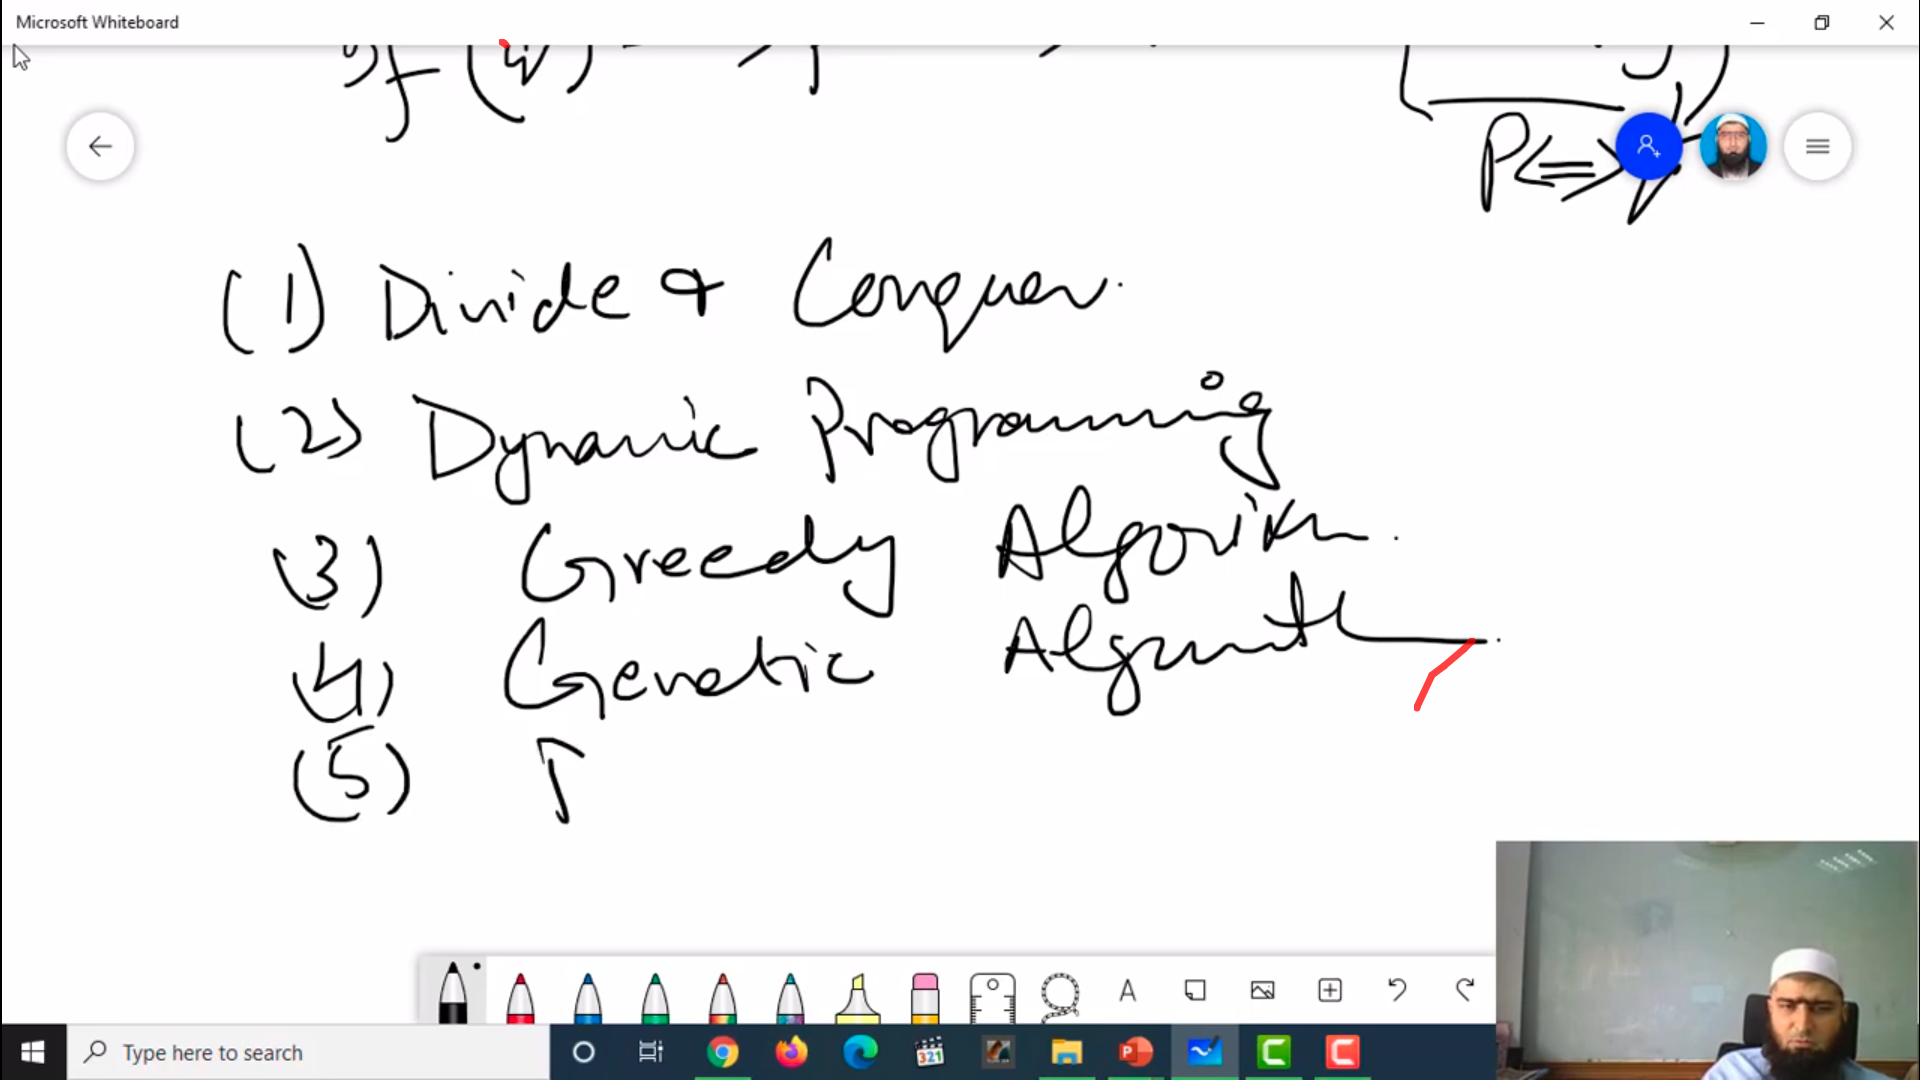 Microsoft Whiteboard
if (
P<=>q
(1) Divide & Conquer.
(2) Dynamic Programming
(3) Greedy Algorithm.
(4) Genetic Algorithm.
(5)
A
321
Type here to search